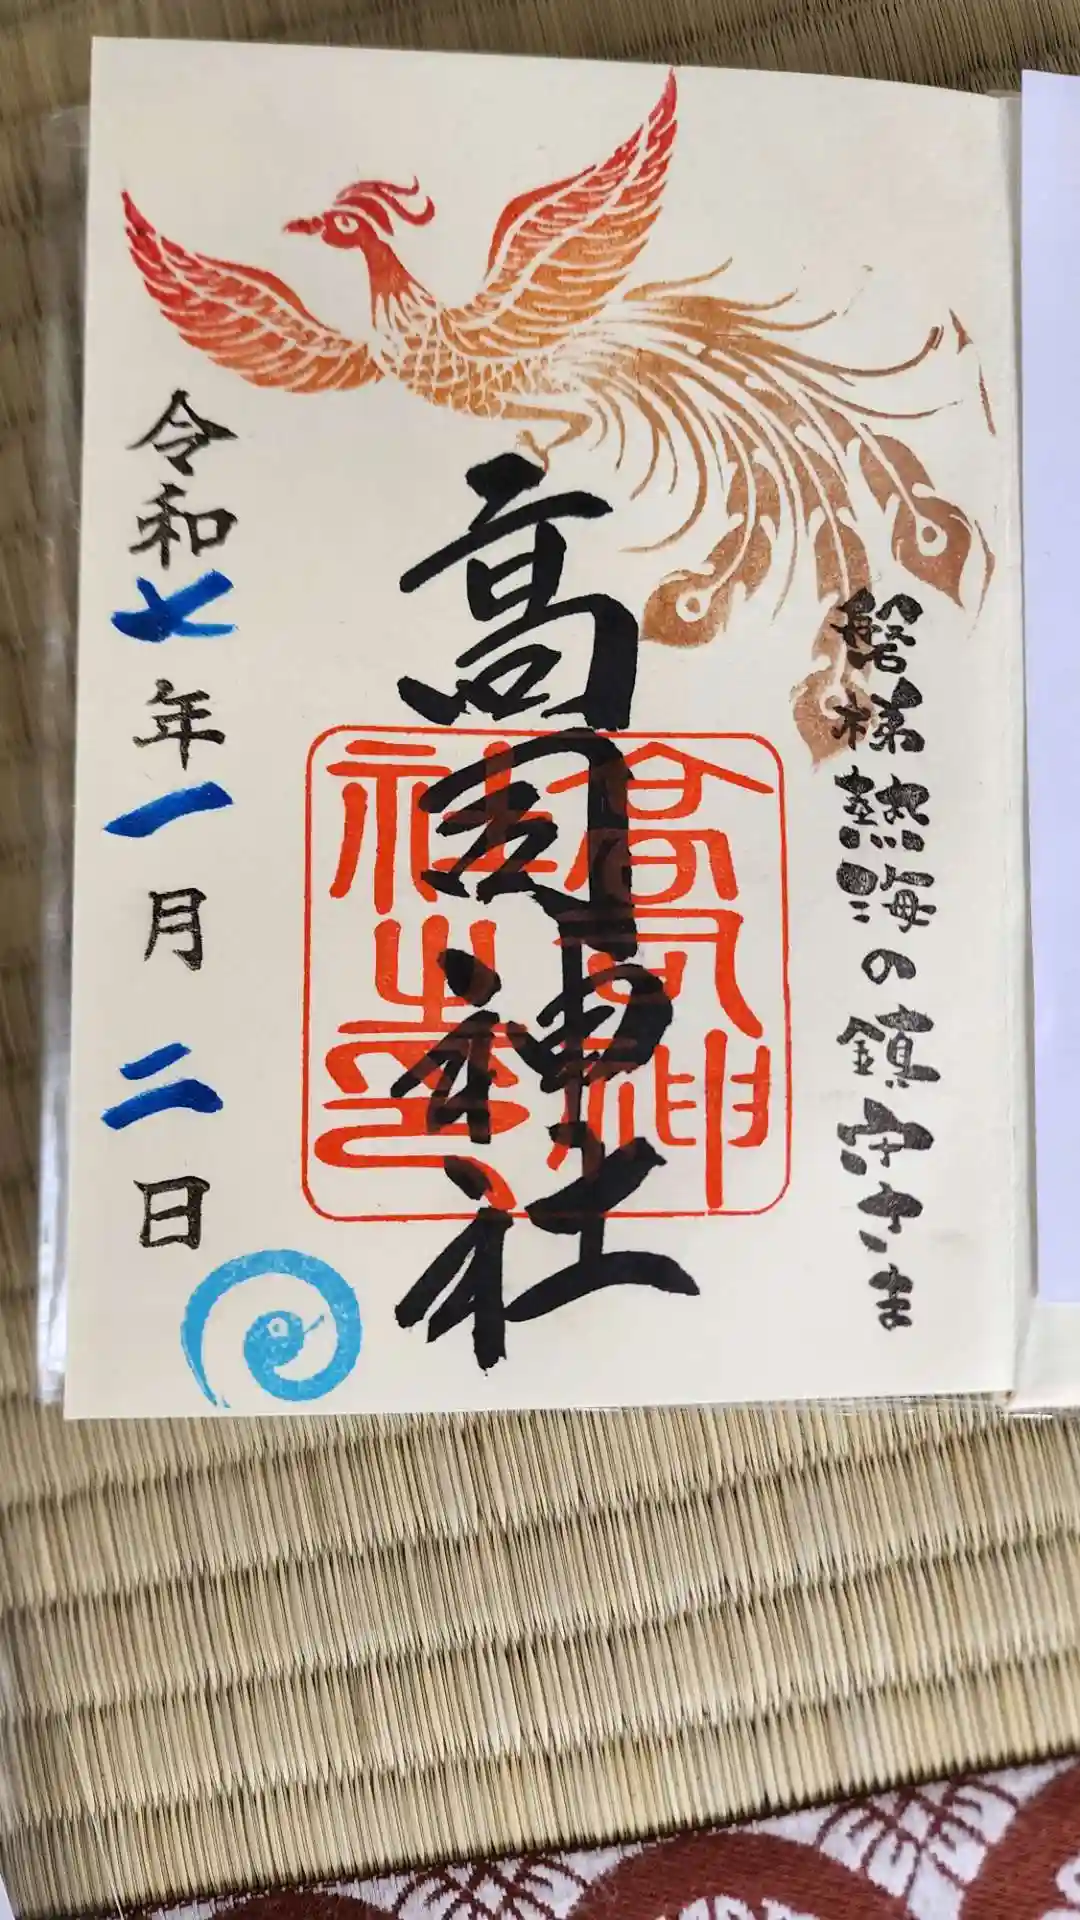 磐梯熱海の鎮守さま
高司神社
高司神
社之印
令和七年一月二日